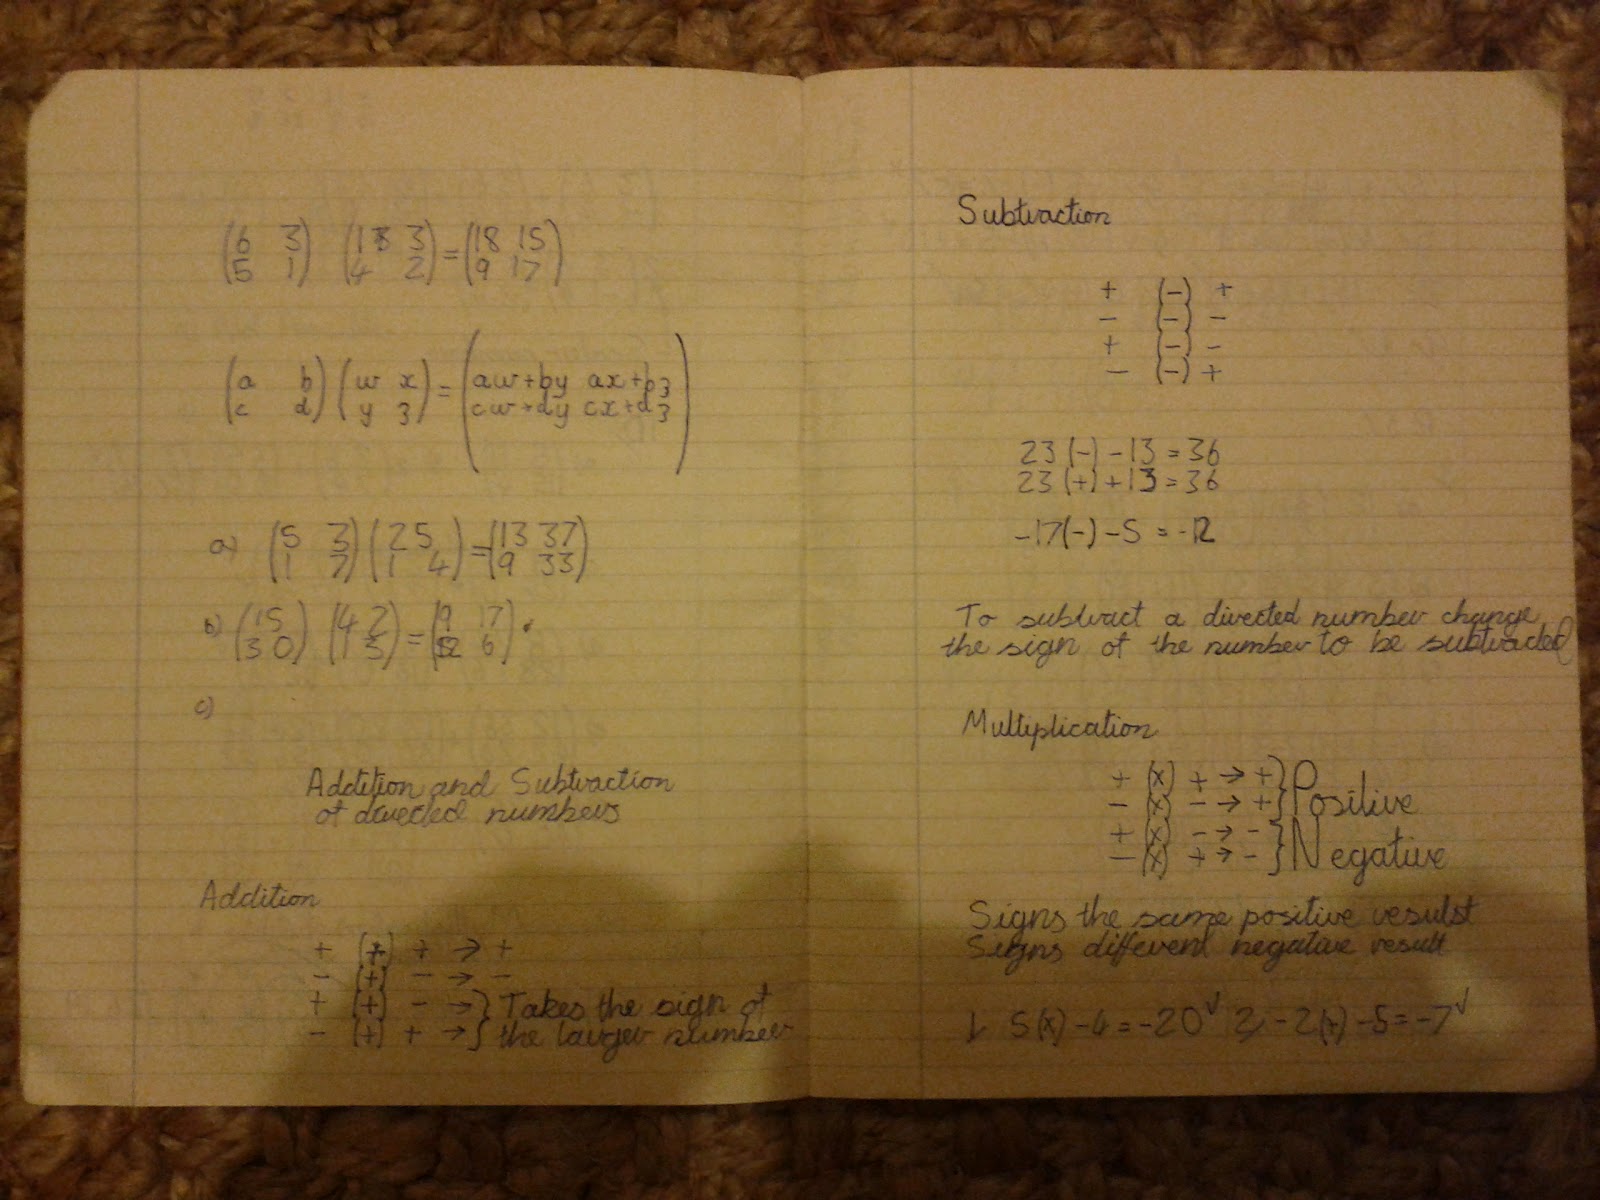 (6 3) (1 3) = (18 15)
(5 1) (4 2) (9 17)
(a b) (w x) = (aw+by ax+bz)
(c d) (y z) (cw+dy cx+dz)
a) (5 3) (2 5) = (13 37)
(1 7) (1 4) (9 33)
b) (1 5) (4 2) = (9 17)
(3 0) (1 3) (12 6)
c)
Addition and Subtraction
of directed numbers
Addition
+ (+) + → +
- (+) - → -
+ (+) - → } Takes the sign of
- (+) + → } the larger number
Subtraction
+ (-) +
- (-) -
+ (-) -
- (-) +
23 (-) -13 = 36
23 (+) +13 = 36
-17(-) -5 = -12
To subtract a directed number change
the sign of the number to be subtracted
Multiplication
+ (x) + → + } Positive
- (x) - → + }
+ (x) - → - } Negative
- (x) + → - }
Signs the same positive resulst
Signs different negative result
1, 5(x) -4 = -20 ✓ 2, -2(+) -5 = -7 ✓